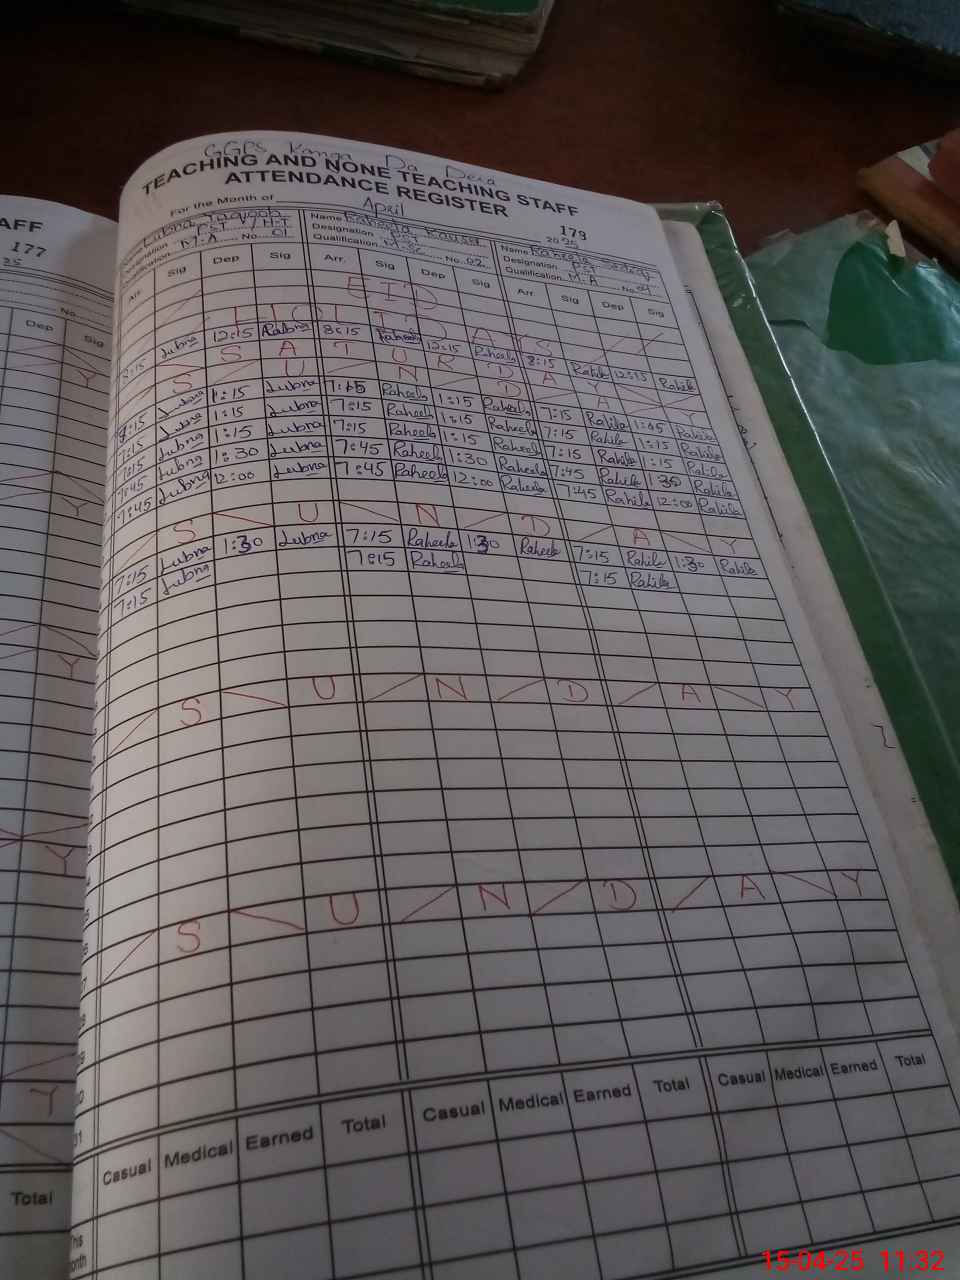 GGPS
TEACHING AND NONE TEACHING STAFF
ATTENDANCE REGISTER
For the Month of April 2025 179
Lubna Yaqoob Name Kausar Name Raheela
PST / H.T Designation Designation PST
M.A No. 01 Qualification M.Sc No. 02 Qualification M.A No.
Arr. Sig Dep Sig Arr. Sig Dep Sig Arr. Sig Dep Sig
EID
HOLIDAYS
8:15 Lubna 12:15 Lubna 8:15 Raheela 12:15 Raheela 8:15 Rahila 12:15 Rahila
SATURDAY
SUNDAY
8:15 Lubna 1:15 Lubna 7:15 Raheela 1:15 Raheela 7:15 Rahila 1:15 Rahila
7:15 Lubna 1:15 Lubna 7:15 Raheela 1:15 Raheela 7:15 Rahila 1:15 Rahila
7:15 Lubna 1:15 Lubna 7:15 Raheela 1:15 Raheela 7:15 Rahila 1:15 Rahila
7:45 Lubna 1:30 Lubna 7:45 Raheela 1:30 Raheela 7:45 Rahila 1:30 Rahila
7:45 Lubna 12:00 Lubna 7:45 Raheela 12:00 Raheela 7:45 Rahila 12:00 Rahila
SUNDAY
7:15 Lubna 1:30 Lubna 7:15 Raheela 1:30 Raheela 7:15 Rahila 1:30 Rahila
7:15 Lubna 7:15 Raheela 7:15 Rahila
SUNDAY
SUNDAY
Casual Medical Earned Total Casual Medical Earned Total Casual Medical Earned Total
This
AFF
177
25
No.
Dep Sig
Y
Y
Y
Y
Y
Total
15-04-25 11:32